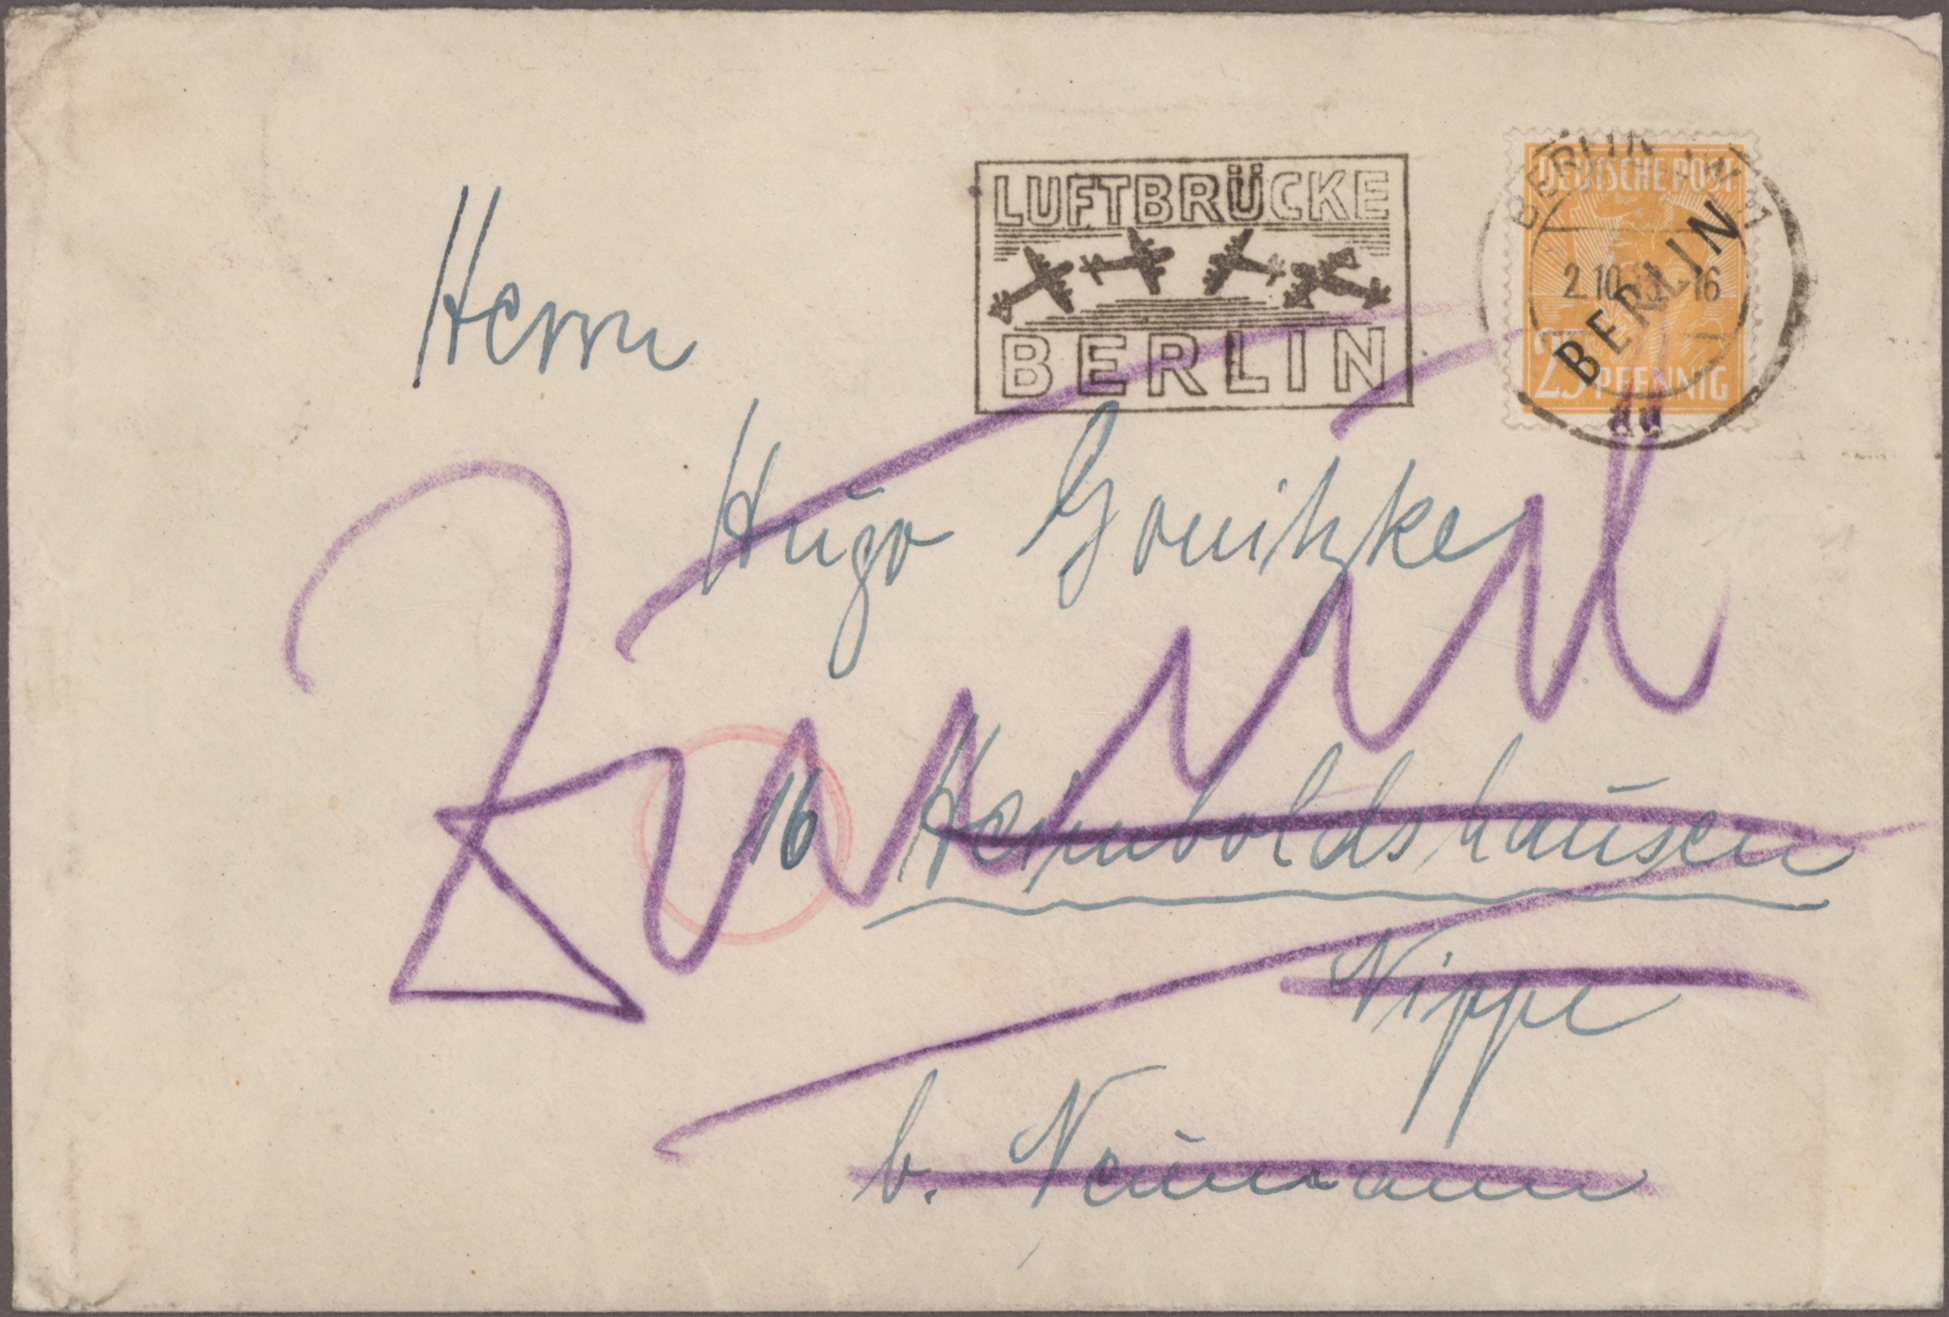 LUFTBRÜCKE
BERLIN
BERLIN
2.10. 16
DEUTSCHE POST
BERLIN
25 PFENNIG
Herrn
Hugo Gonitzke
16 Heimboldshausen
Nippe
b. Neumann
Zurück